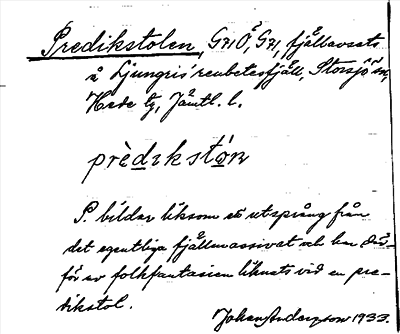 Predikstolen, G71Ö, G71, fjällavsats
å Ljungris' renbetesfjäll, Storsjö sn,
Hede tg, Jämtl. l.
prèdikstón
P. bildar liksom ett utsprång från
det egentliga fjällmassivet och har där-
för av folkfantasien liknats vid en pre-
dikstol.
Johan Anderzson 1933.